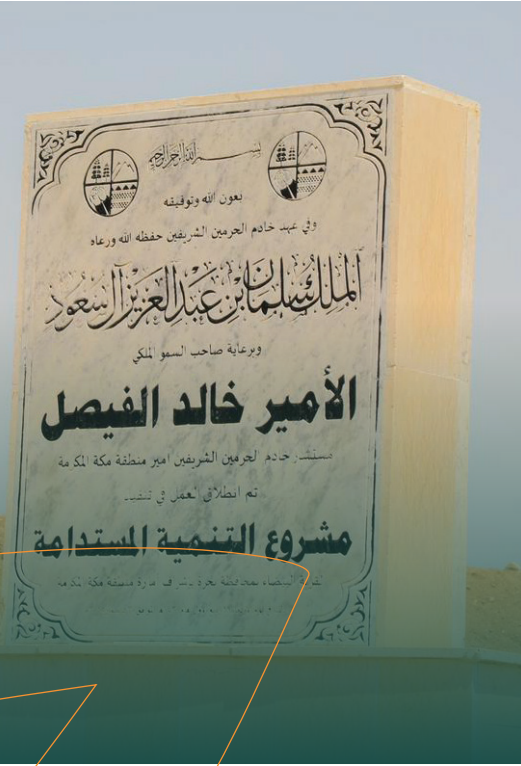 بسم الله الرحمن الرحيم
بعون الله وتوفيقه
وفي عهد خادم الحرمين الشريفين حفظه الله ورعاه
الملك سلمان بن عبدالعزيز آل سعود
وبرعاية صاحب السمو الملكي
الأمير خالد الفيصل
مستشار خادم الحرمين الشريفين امير منطقة مكة المكرمة
تم انطلاق العمل في تنفيذ
مشروع التنمية المستدامة
البيضاء بمحافظة بحرة امارة منطقة مكة المكرمة